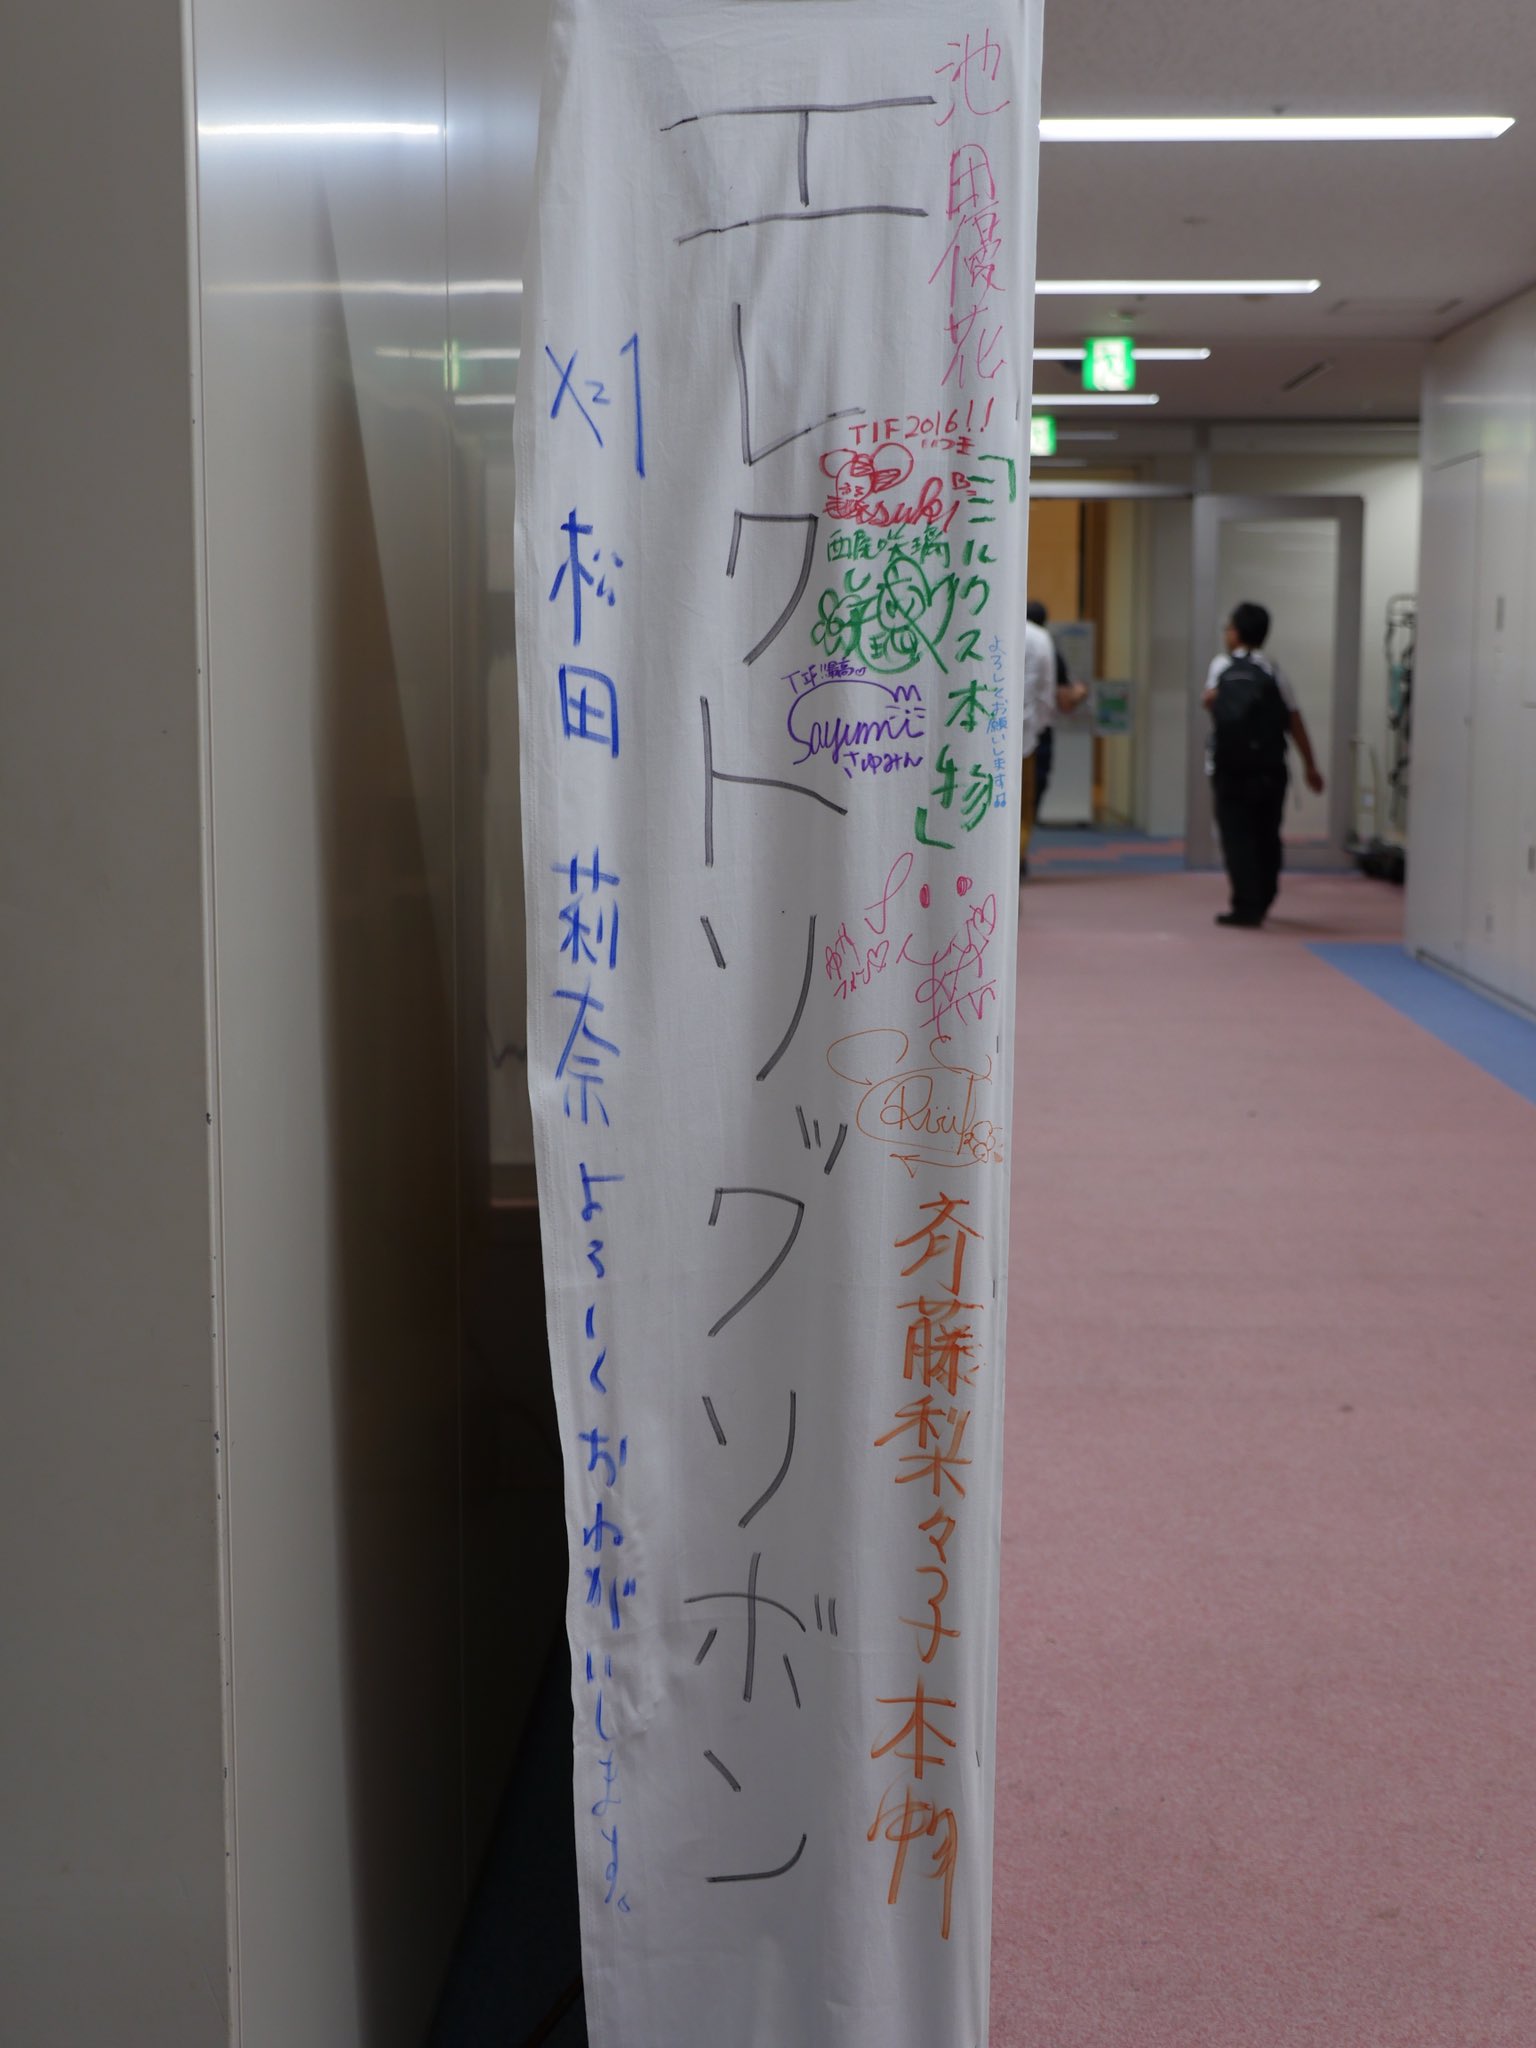 池田優花
TIF2016!!
いつき
「ミルクス本物」
西尾咲璃
よろしくお願いします♫
TIF!!最高♡
Sayumi
さゆみん
斉藤梨々子本物
エレクトリックリボン
x=1
松田 莉奈 よろしくおねがいします。